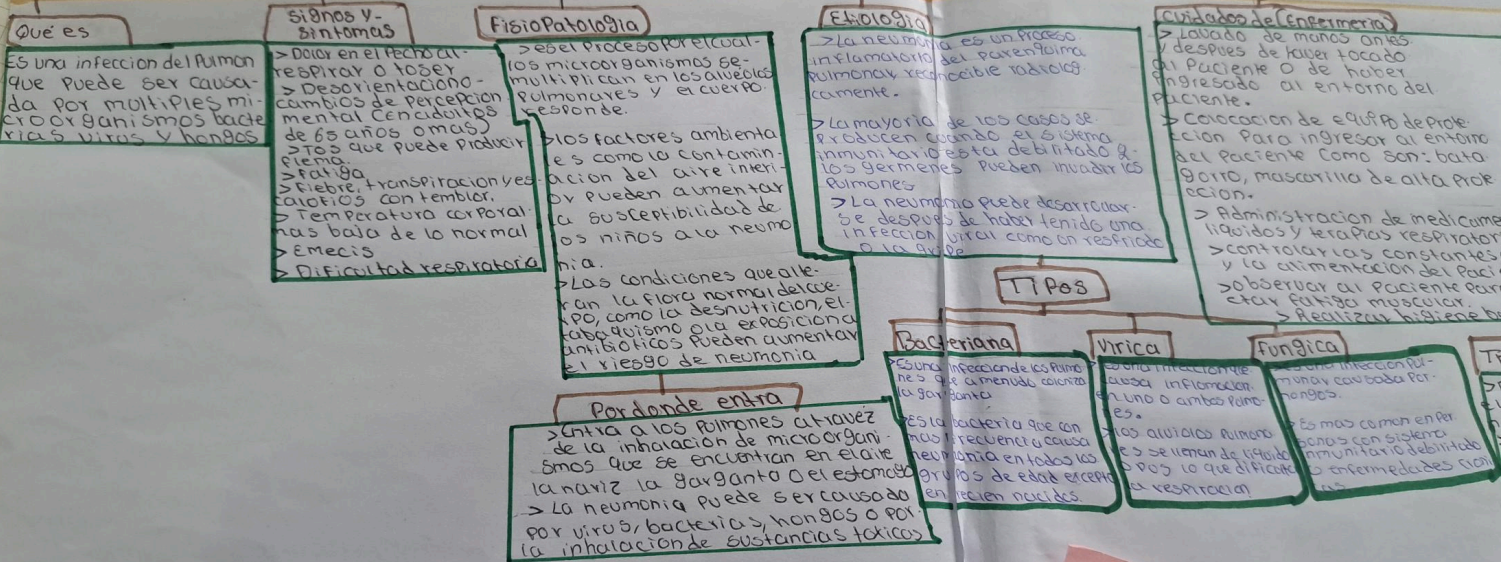 Qué es
ES una infeccion del Pulmon
que Puede ser causa-
da Por multiples mi-
croorganismos bacte
rias virus y hongos
Signos y-
sintomas
> Dolor en el Pecho al-
respirar o toser
> Desorientacion o-
cambios de Percepcion
mental Cen adultos
de 65 años o mas)
> Tos que puede Producir
flema.
> Fatiga
> Fiebre, transpiracion y es-
calofrios con temblor.
> Temperatura corporal
mas baja de lo normal
> Emecis
> Dificultad respiratoria
FisioPatologia
> es el Proceso por el cual-
los microorganismos se-
multiplican en los alveolos
Pulmonares y el cuerpo
responde.
> los factores ambienta
les como la contamin-
acion del aire interi-
or pueden aumentar
la susceptibilidad de
los niños a la neumo
nia.
> Las condiciones que alte-
ran la flora normal del cue-
rpo, como la desnutricion, el-
tabaquismo o la exposicion a
antibioticos pueden aumentar
el riesgo de neumonia
Por donde entra
> Entra a los pulmones atravez
de la inhalacion de microorgani-
smos que se encuentran en el aire
la nariz la garganta o el estomago
> La neumonia puede ser causada
por virus, bacterias, hongos o por
la inhalacion de sustancias toxicas
Etiologia
> La neumonia es un Proceso
inflamatorio del parenquima
pulmonar reconocible radiolog
camente.
> La mayoria de los casos se
producen cuando el sistema
inmunitario esta debilitado
los germenes pueden invadir los
pulmones
> La neumonia puede desarrollar-
se despues de haber tenido una
infeccion viral como un resfriado
o la gripe
Tipos
Bacteriana
> Es una infeccion de los Pulmo
nes que a menudo coloniza
la garganta
> es la bacteria que con
mas frecuencia causa
neumonia en todos los
grupos de edad excepto
en recien nacidos.
Virica
causa inflamacion
en uno o ambos Pulmo-
es.
> los alveolos Pulmona
es se llenan de liquido
o pus lo que dificulta
la respiracion
Fungica
es una infeccion Pul-
monar causada Por-
hongos.
> Es mas comun en Per
sonas con sistema
inmunitario debilitado
o enfermedades cron
Cuidados de Cenfermeria)
> Lavado de manos antes
y despues de haver tocado
al Paciente o de haber
ingresado al entorno del
Paciente.
> Colocacion de equipo de Prote-
ccion Para ingresar al entorno
del Paciente Como son: bata
gorro, mascarilla de alta Prote
ccion.
> Administracion de medicame
liquidos y terapias respirator
> controlar las constantes
y la alimentacion del Paci
> observar al Paciente Par
ctar fatiga muscular.
> Realizar higiene